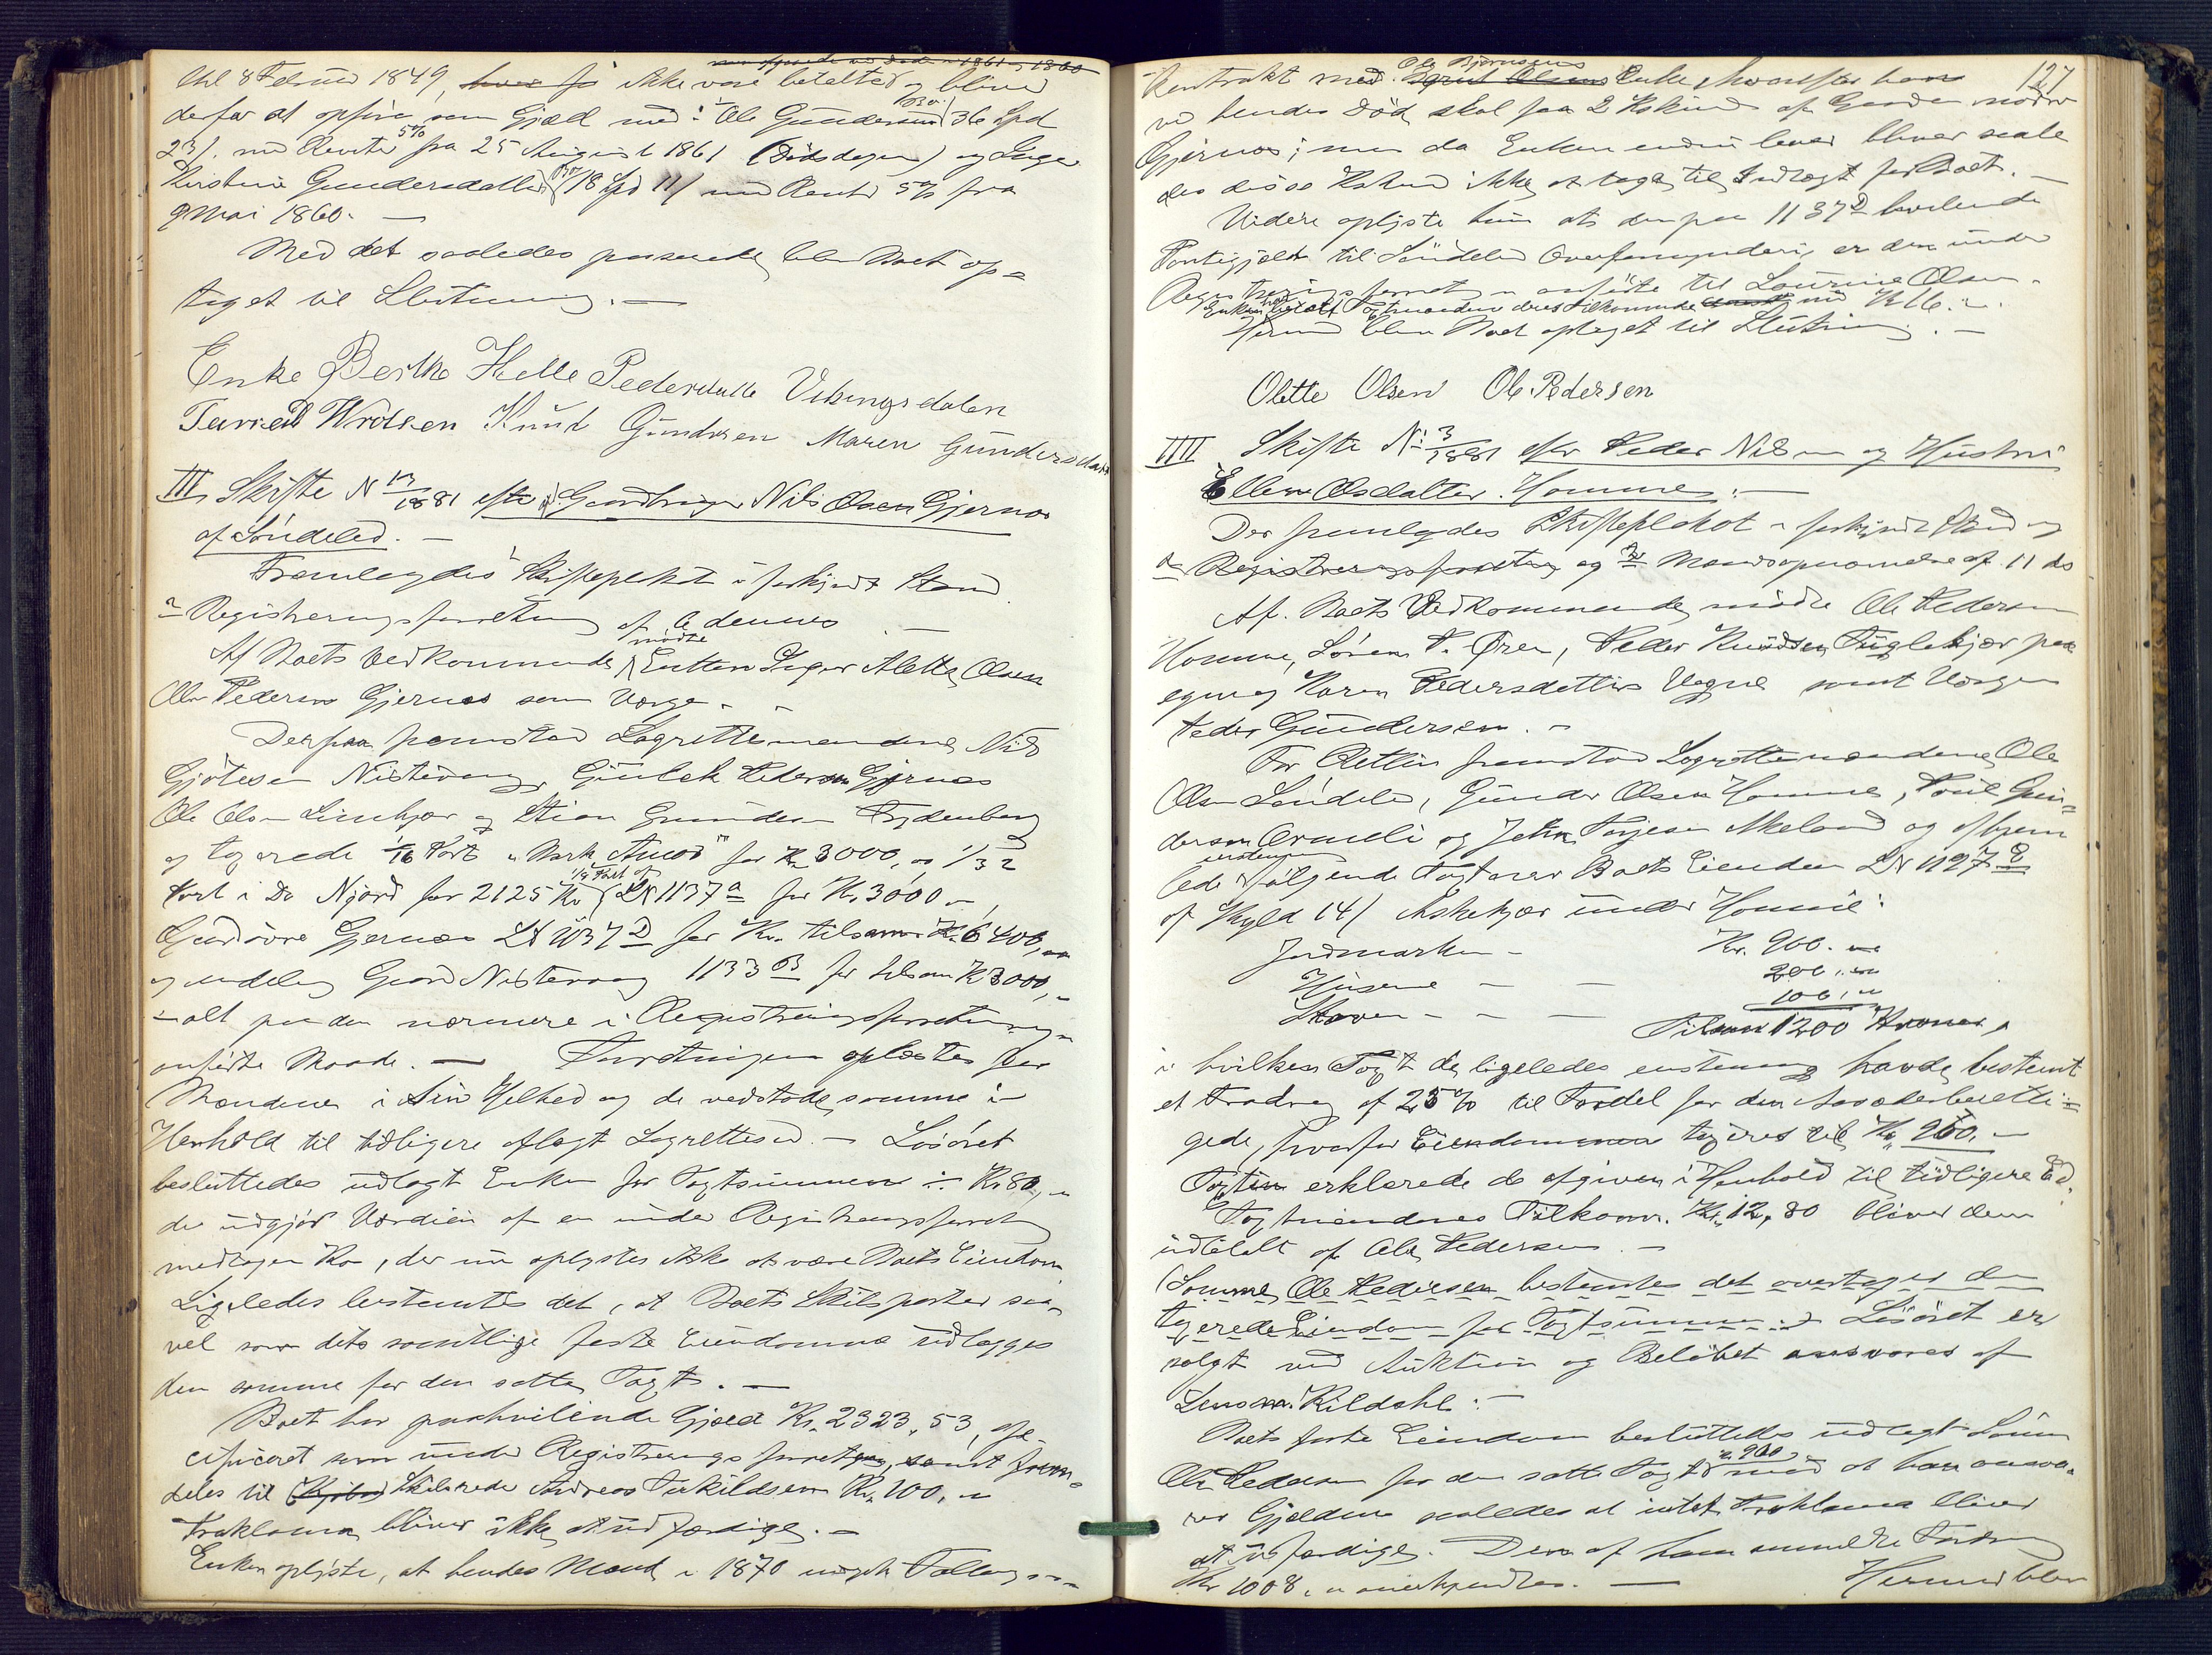 som opgjorde ved Døden 1861 og 1860
8 Februar 1849, ikke være betalte og bliver
derfor at opføre som Gjæld med: Ole Gundersen 36 Spd
23/. med Rente 5% fra 25 August 1861 (Dødsdagen) og Inger
Kirstine Gundersdatter 18 Spd 11/ med Rente 5% fra
9 Mai 1860. —
Med det saaledes passerede blev Boet op=
taget til Slutning. —
Enke Berthe Helle Pedersdatter Vikingsdalen
Knud Gundersen Maren Gundersdatter
III Skifte N 13/1881 efter Gaardbruger Nils Olsen Gjernes
af Søndeled. —
Fremlagdes Skifteplakat i forkyndt Stand
Registreringsforretning af 6 dennes —
Af Boets Vedkommende mødte Enken Inger Alette Olsen
Ole Pedersen Gjernes som Værge. -
Derpaa fremstod Lagrettemændene Nils
Gjøtesen Nistevaag, Gunleik Pedersen Gjernes
Ole Olsen Lindkjær og Stian Gundersen Frydenborg
og taxerede 1/16 Part i Bark "Amor" for Kr 3000, og 1/32
Part i Do Njord for 2125 Kr 1/8 Part af LN 1137 a for Kr. 3000 -,
Gaarden Gjernes LN 1137 D for Kr. tilsammen Kr 6400,
og endelig Gaard Nistevaag 1133 B for tilsam Kr 3000,-
- alt paa den nærmere i Registreringsforretningen
anførte Maade. — Forretningen oplæstes for
Mændene i sin Helhed og de vedstode samme i
Henhold til tidligere aflagt Lagretteed. — Løsøret
besluttedes udlagt Enken for Taxtsummen ÷ Kr 80,-
der udgjør Værdien af en under Registreringsforretn
medtagen Ko, der nu oplystes ikke at være Boets Eiendom
Ligeledes bestemtes det, at Boets Skibsparter saa-
vel som dets samtlige faste Eiendomme udlægges
den samme for den satte Taxt. —
Boet har paahvilende Gjæld Kr. 2323,53, spe-
cificeret som under Registreringsforretning, samt frem-
deles til Skibsreder Andreas Terkildsen Kr. 100, -
Proklama bliver ikke at udfærdige. —
Enken oplyste, at hendes Mand i 1870 indgik
127
Kontrakt med Ole Bjørnsens Enke hvorefter han
ved hendes Død skal faa 2 Kskind af Gaarden nedre
Gjernes; men da Enken endnu lever bliver saale
des disse Kskind ikke at tage til Indtægt for Boet. —
Videre oplyste hun at den paa 1137 D heftende
Pantegjæld til Søndeled Overformynderi, er den under
Registreringsforretn anførte til Lourine Olsen.
Enken har betalt Taxtmændene deres Tilkommende med Kr 16. -
Hermed blev Boet optaget til Slutning. —
Olette Olsen Ole Pedersen
IIII Skifte N: 3/1881 efter Peder Nilsen og Hustru
Ellen Olsdatter Homme: —
Der fremlagdes Skifteplakat i forkyndt Stand og
Registreringsforretning og Mandsopnævnelse af 11 ds
Af Boets Vedkommende mødte Ole Pedersen
Homme, Søren P. Øren, Peder Knudsen Fuglekjær paa
egen og Karen Pedersdatters Vegne samt Værgen
Peder Gundersen. -
For Retten fremstod Lagrettemændene Ole
Olsen Søndeled, Gunder Olsen Homme, Poul Gun-
dersen og John Torjesen Akeland og afhjem
lede følgende Taxt over Boets Eiendom LN 1127 E
af Skyld 14/ Askekjær under Homme:
Jordmarken - Kr. 900. -
Husene - - 200, -
Skoven - - - 100, -
Tilsam 1200 Kroner,
i hvilken Taxt de ligeledes enstemmig havde bestemt
et Fradrag af 25% til Fordel for den Aasædesberetti=
gede, hvorfor Eiendommen taxeres til Kr. 900. -
Taxten erklærede de afgiven i Henhold til tidligere Ed.
Taxtmændenes Tilkomm. Kr. 12,80 bliver dem
udbetalt af Ole Pedersen. —
Sønnen Ole Pedersen bestemtes det overtager den
taxerede Eiendom for Taxtsummen. Løsøret er
solgt ved Auktion og Beløbet ansvares af
Lensm. Kildahl. —
Boets faste Eiendom besluttedes udlagt Sønnen
Ole Pedersen for den satte Taxt Kr. 900 mod at han ansva-
rer Gjælden saaledes at intet Proklama bliver
at udfærdige. Den af ham anmeldte Fordring
Kr. 1008, - anerkjendtes. — Hermed blev